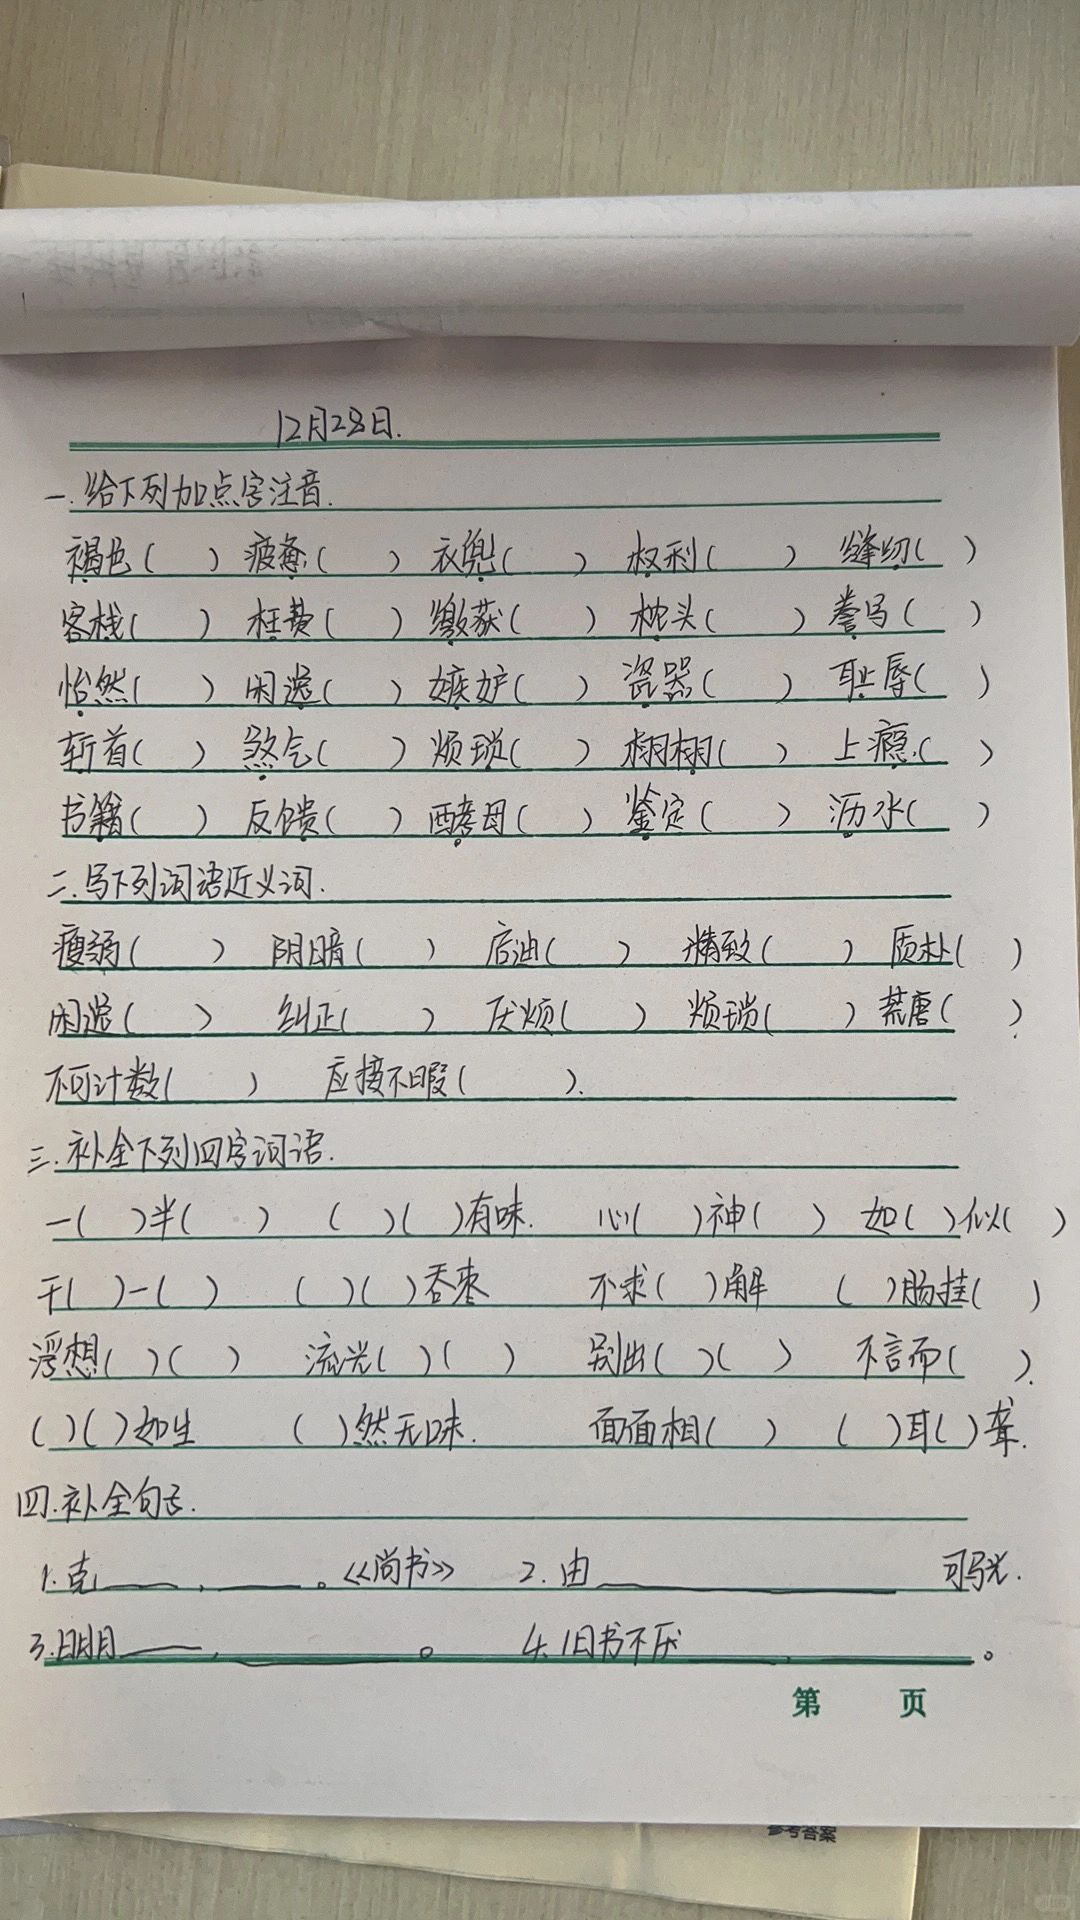 12月28日.
一.给下列加点字注音.
褐色( ) 疲惫( ) 衣兜( ) 权利( ) 缝纫( )
客栈( ) 枉费( ) 缴获( ) 枕头( ) 誊写( )
怡然( ) 闲逸( ) 嫉妒( ) 瓷器( ) 耻辱( )
斩首( ) 煞气( ) 烦琐( ) 栩栩( ) 上瘾( )
书籍( ) 反馈( ) 酵母( ) 鉴定( ) 沥水( )
二.写下列词语近义词.
瘦弱( ) 阴暗( ) 启迪( ) 精致( ) 质朴( )
闲逸( ) 纠正( ) 厌烦( ) 烦琐( ) 荒唐( )
不可计数( ) 应接不暇( ).
三.补全下列四字词语.
一( )半( ) ( )( )有味. 心( )神( ) 如( )似( )
千( )一( ) ( )( )吞枣 不求( )解 ( )肠挂( )
浮想( )( ) 流光( )( ) 别出( )( ) 不言而( ).
( )( )如生 ( )然无味. 面面相( ) ( )耳( )聋.
四.补全句子.
1.克____,____。《尚书》 2.由____________ 司马光.
3.明月____,________。 4.旧书不厌____,________。
第 页
参考答案